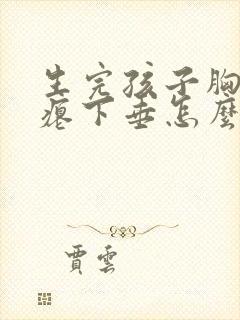 生完孩子胸
瘪下垂怎麼
賈雲